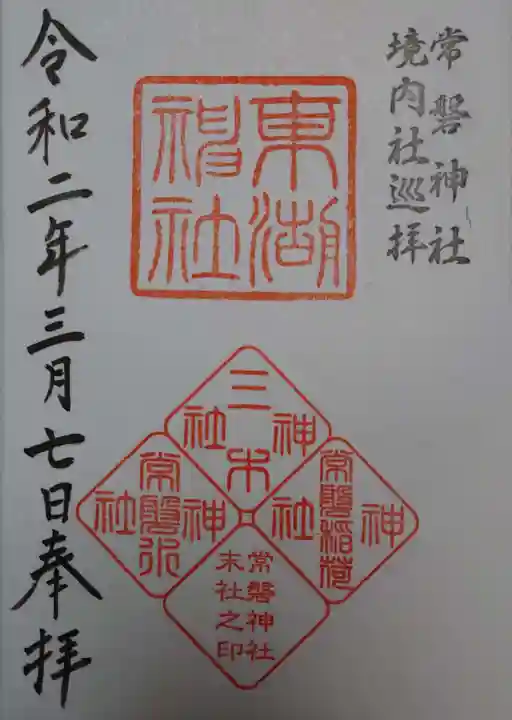 常磐神社
境内社巡拝
東湖
神社
三木
神社
常磐稲荷
神社
常磐水
神社
常磐神社
末社之印
令和二年三月七日奉拝